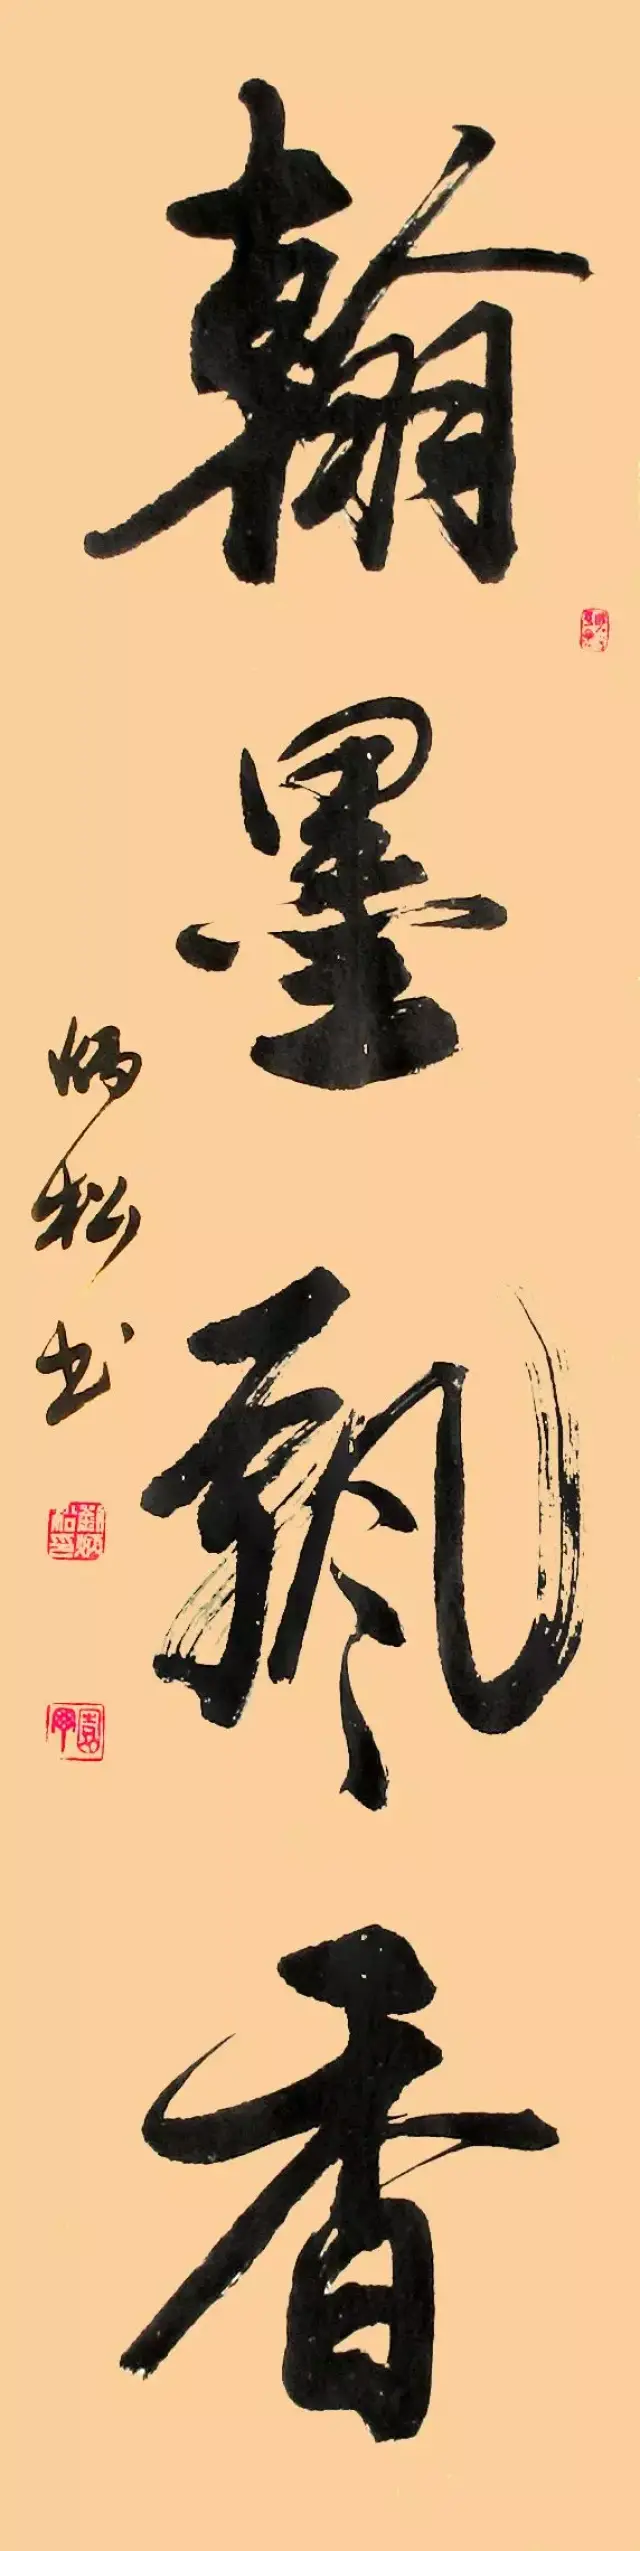 翰墨飘香
炳松书